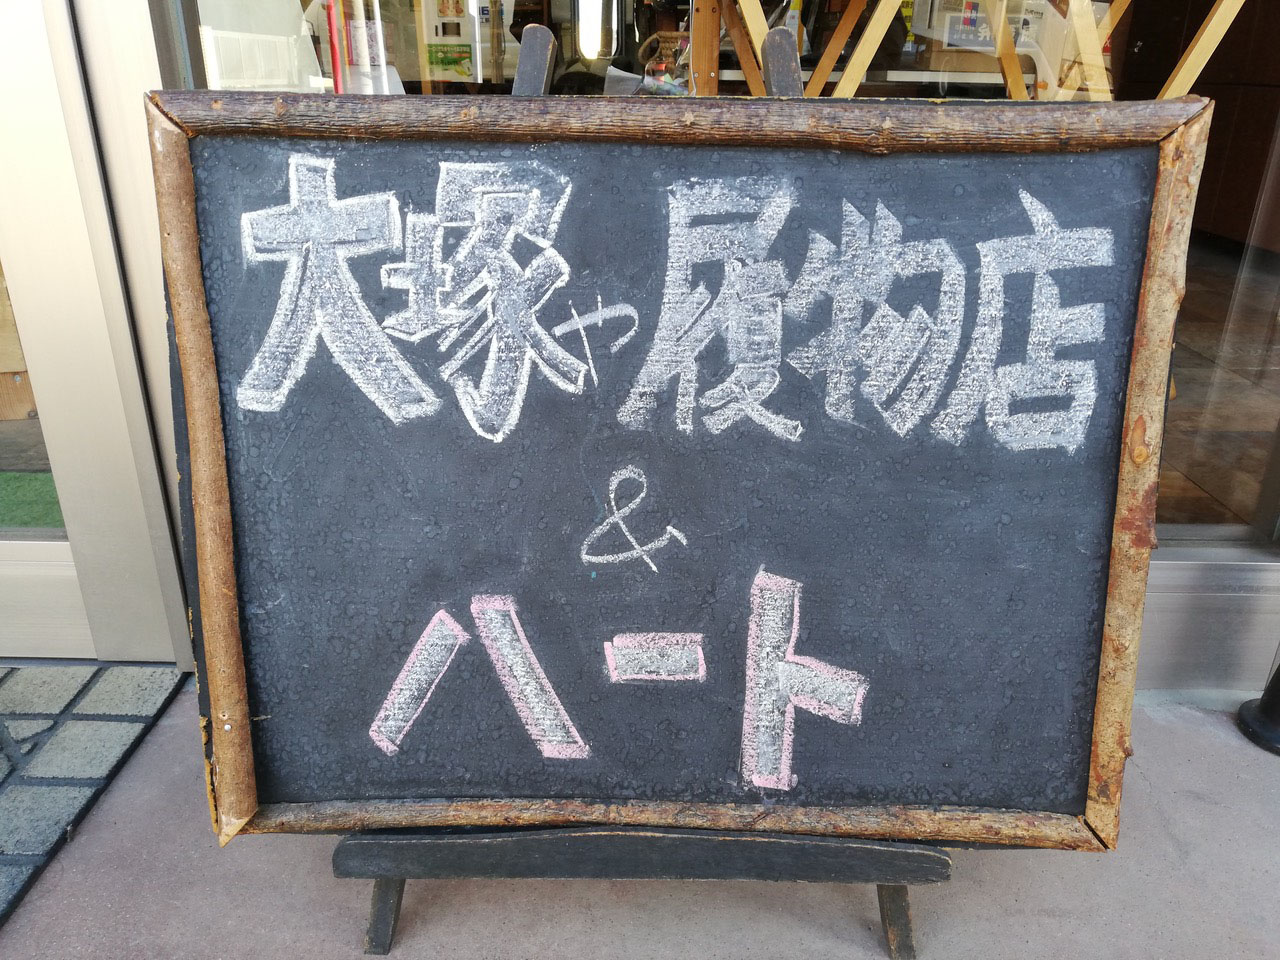 大塚や履物店
&
ハート